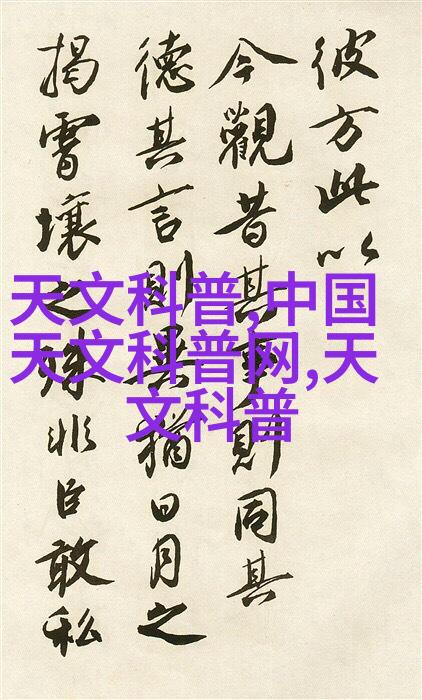 彼方此以
今觀昔其事則同其
德其言則異猶日月之
揭霄壤之殊非臣敢私
天文科普,中国
天文科普网,天
文科普